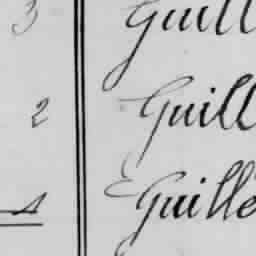 3 Guill
2 Guill
Guille